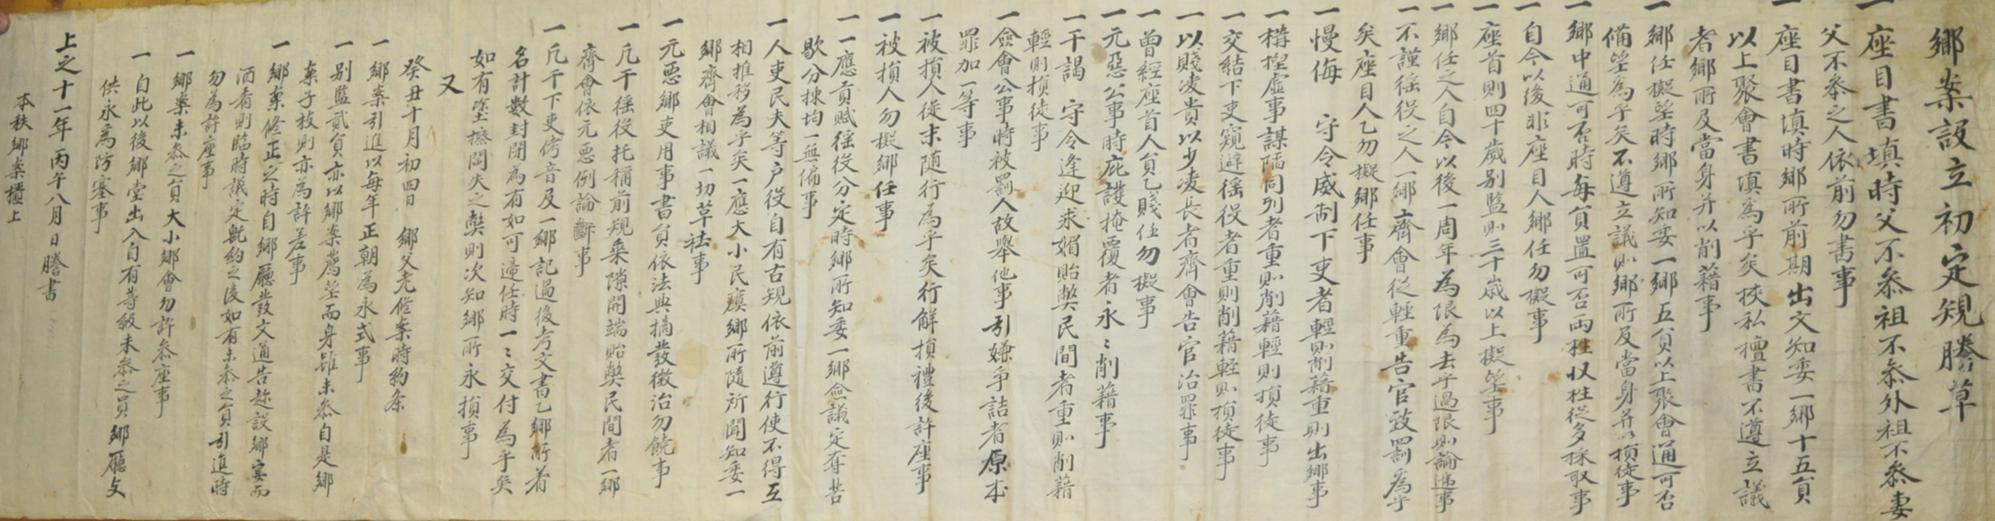 鄕案設立初定規謄草
一座目書塡時父不參祖不參外祖不參妻
父不參之人依前勿書事
一座目書塡時鄕所前期出文知委一鄕十五員
以上聚會書塡爲乎矣挾私擅書不遵立議
者鄕所及當身并以削籍事
一鄕任擬望時鄕所知委一鄕五員以上聚會通可否
備望爲乎矣不遵立議則鄕所及當身并以損徒事
一鄕中通可否時每員置可否兩柱收柱從多採取事
一自今以後非座目人鄕任勿擬事
一座首則四十歲別監則三十歲以上擬望事
一鄕任之人自今以後一周年爲限爲去乎過限則論遞事
一不謹徭役之人一鄕齊會從輕重告官致罰爲乎
矣座目人乙勿擬鄕任事
一慢侮 守令威制下吏者輕則削籍重則出鄕事
一構捏虛事謀陷同列者重則削籍輕則損徒事
一交結下吏窺避徭役者重則削籍輕則損徒事
一以賤凌貴以少凌長者齊會告官治罪事
一曾經座首人員乙賤任勿擬事
一元惡公事時庇護掩覆者永〻削籍事
一干謁 守令逢迎求媚貽弊民間者重則削籍
輕則損徒事
一僉會公事時被罰人故擧他事引嫌爭詰者原本
罪加一等事
一被損人徒末隨行爲乎矣行解損禮後許座事
一被損人勿擬鄕任事
一一應貢賦徭役分定時鄕所知委一鄕僉議定奪苦
歇分揀均一無偏事
一人吏民夫等戶役自有古規依前遵行使不得互
相推移爲乎矣一應大小民瘼鄕所隨所聞知委一
鄕齊會相議一切革祛事
一元惡鄕吏用事書員依法典摘發徵治勿饒事
一凡干徭役托稱前規乘隙開端貽弊民間者一鄕
齊會依元惡例論斷事
一凡干下吏傳音及一鄕記過後考文書乙鄕所着
名計數封閉爲有如可遞任時一〻交付爲乎矣
如有塗擦閪失之弊則次知鄕所永損事
又
癸丑十月初四日 鄕父老修案時約條
一鄕案引進以每年正朝爲永式事
一別監貳員亦以鄕案薦望而身雖未參自是鄕
案子枝則亦爲許差事
一鄕案修正之時自鄕廳發文通告趁設鄕宴而
酒肴則臨時議定既約之後如有未參之員引進時
勿爲許座事
一鄕案未參之員大小鄕會勿許參座事
一自此以後鄕堂出入自有等級未參之員鄕廳文
供永爲防塞事
上之十一年丙午八月日謄書
本秩鄕案樻上